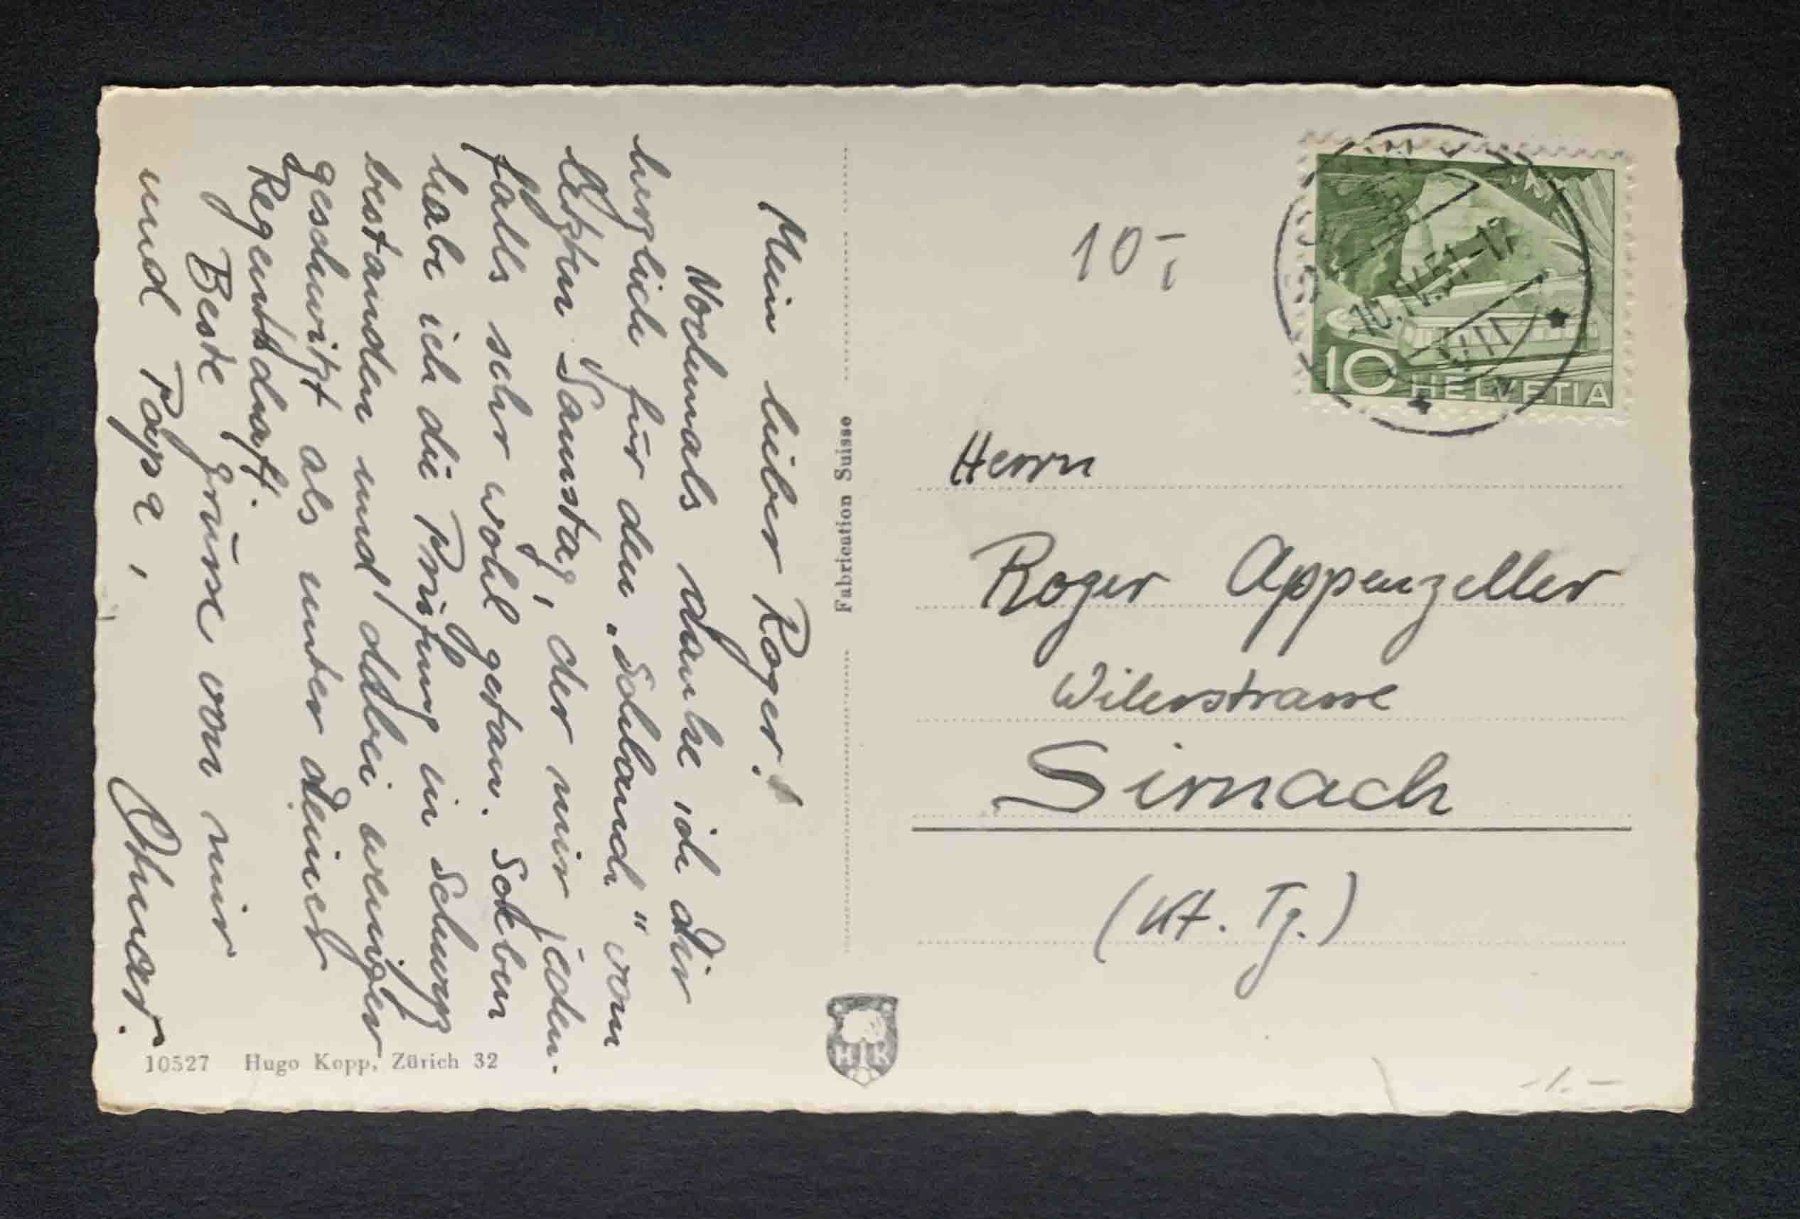 Mein lieber Roger!
Nochmals danke ich dir
herzlich für den "Schlauch" vom
letzten Samstag, der mir jeden-
falls sehr wohl getan. Soeben
habe ich die Prüfung in Schwyz
bestanden und dabei weniger
geschwitzt als unter deiner
Regentschaft.
Beste Grüsse von mir
und Papa,
Othmar.
10527 Hugo Kopp, Zürich 32
Fabrication Suisse
HK
10.-
10 HELVETIA
Herrn
Roger Appenzeller
Wilerstrasse
Sirnach
(Kt. Tg.)
-1.-